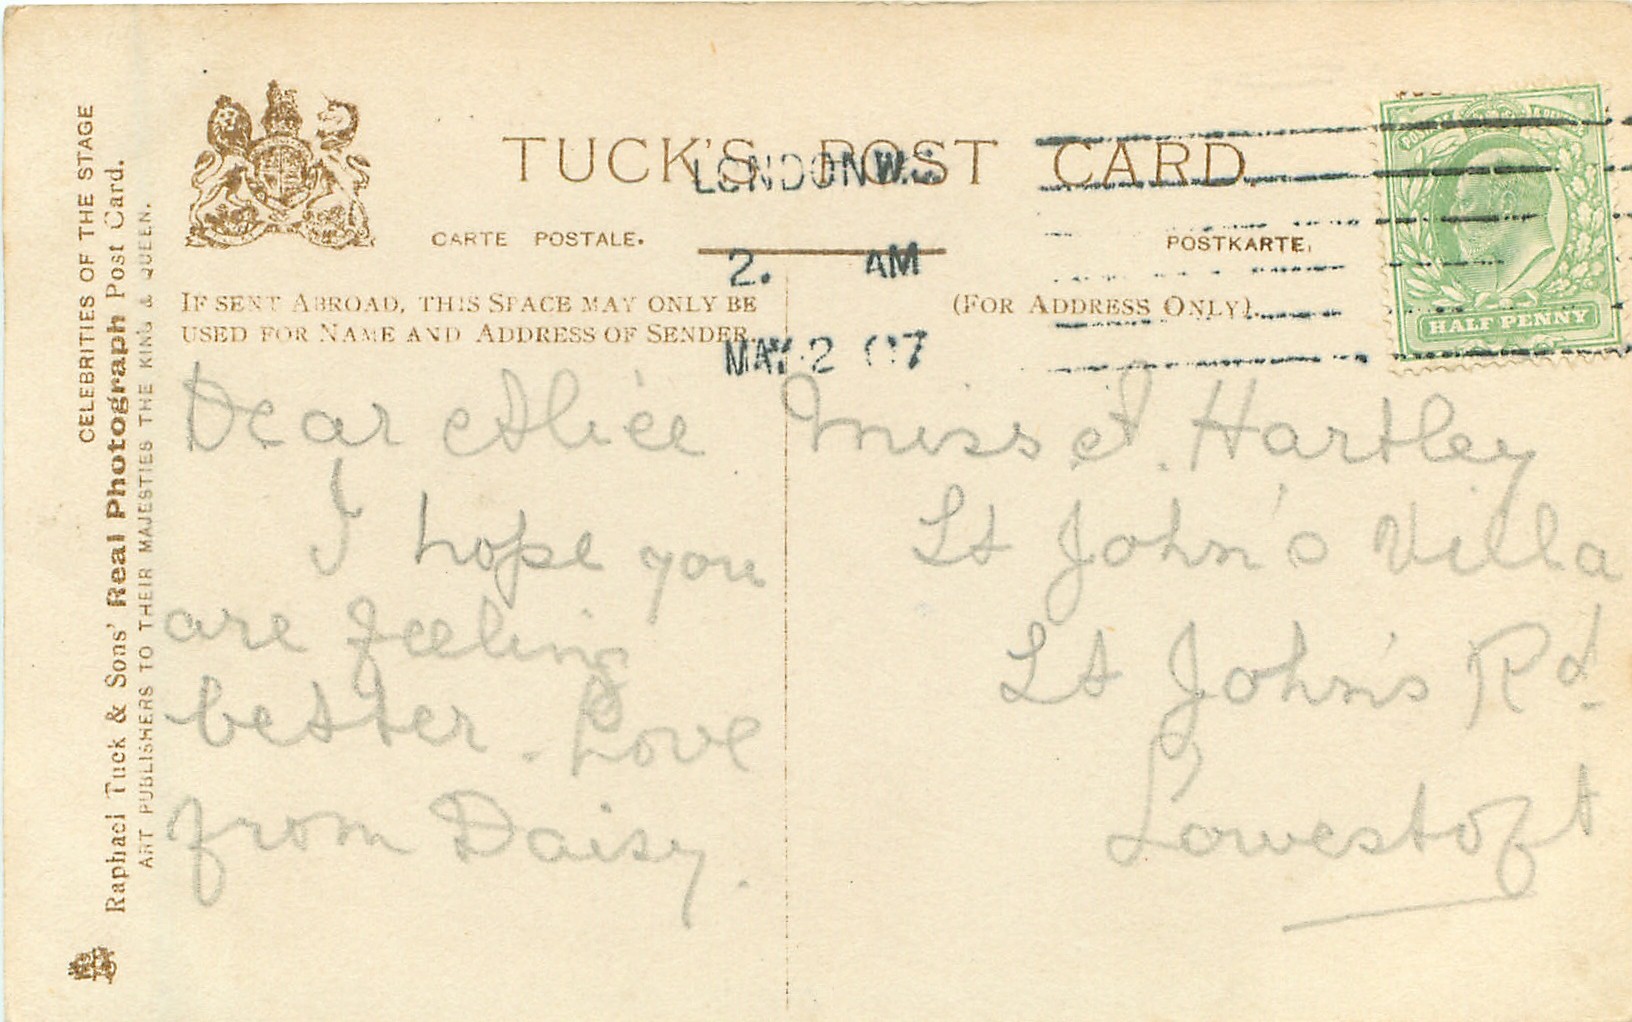 TUCK'S POST CARD.
CARTE POSTALE.
POSTKARTE.
LONDON W.C
2. AM
MAY 2 07
HALF PENNY
IF SENT ABROAD, THIS SPACE MAY ONLY BE
USED FOR NAME AND ADDRESS OF SENDER.
(FOR ADDRESS ONLY).
Dear Alice
I hope you
are feeling
better. Love
from Daisy.
Miss A. Hartley
St John's Villa
St John's Rd.
Lowestoft
CELEBRITIES OF THE STAGE
Raphael Tuck & Sons' Real Photograph Post Card.
ART PUBLISHERS TO THEIR MAJESTIES THE KING & QUEEN.